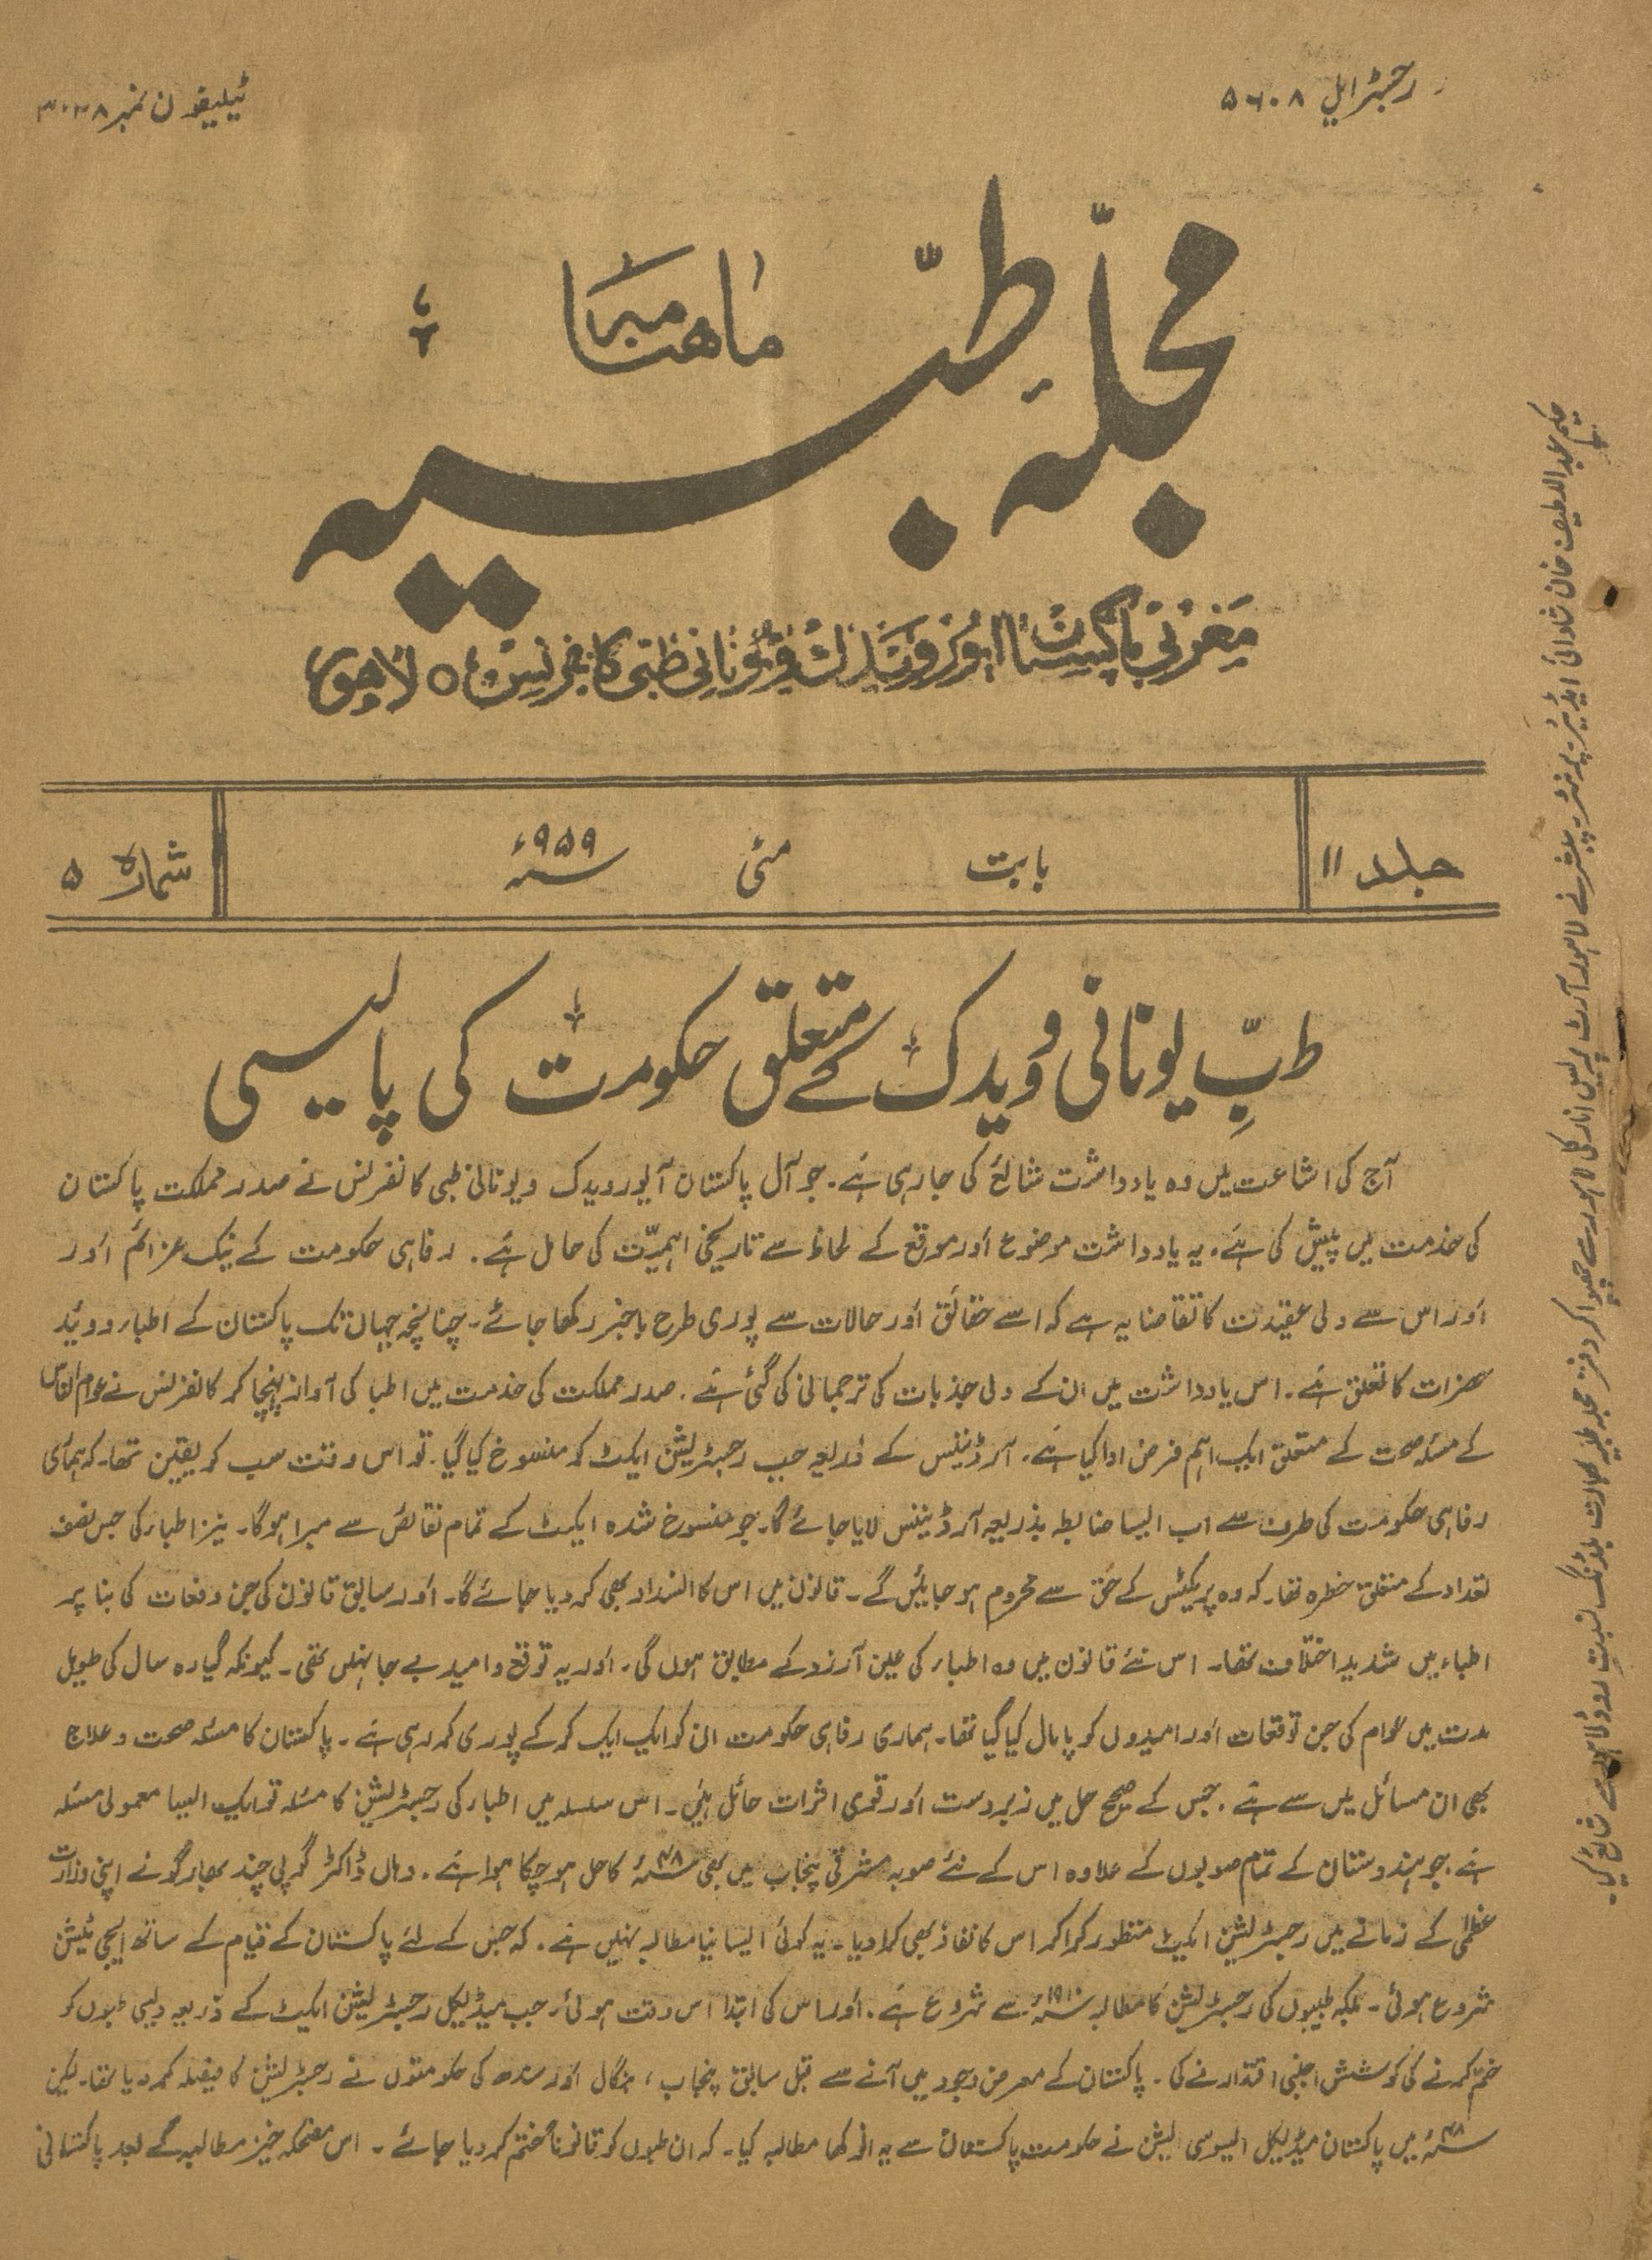 رجسٹرڈ ایل ۵۶۰۸
ٹیلیفون نمبر ۳۰۳۸
ماهنامہ
مجلّہ طبّیہ
مغربی پاکستان ایورویدک و یونانی طبی کانفرنس ○ لاہور
جلد ۱۱
بابت مئی ۱۹۵۹ء
شمارہ ۵
طبِّ یونانی و ویدک کے متعلق حکومت کی پالیسی
آج کی اشاعت میں وہ یادداشت شائع کی جا رہی ہے۔ جو آل پاکستان آیورویدک ویونانی طبی کانفرنس نے صدر مملکت پاکستان
کی خدمت میں پیش کی ہے، یہ یادداشت موضوع اور موقع کے لحاظ سے تاریخی اہمیّت کی حامل ہے۔ رفاہی حکومت کے نیک عزائم اور
اور اس سے دلی عقیدت کا تقاضا یہ ہے کہ اسے حقائق اور حالات سے پوری طرح باخبر رکھا جائے۔ چنانچہ جہاں تک پاکستان کے اطباء و وئید
حضرات کا تعلق ہے۔ اس یادداشت میں ان کے دلی جذبات کی ترجمانی کی گئی ہے۔ صدر مملکت کی خدمت میں اطبا کی آواز پہنچا کر کانفرنس نے عوام الناس
کے مسئلہ صحت کے متعلق ایک اہم فرض ادا کیا ہے۔ آرڈیننس کے ذریعہ جب رجسٹریشن ایکٹ کو منسوخ کیا گیا۔ تو اس وقت سب کو یقین تھا۔ کہ ہماری
رفاہی حکومت کی طرف سے اب ایسا ضابطہ بذریعہ آرڈیننس لایا جائے گا۔ جو منسوخ شدہ ایکٹ کے تمام نقائص سے مبرا ہوگا۔ نیز اطباء کی جس نصف
تعداد کے متعلق خطرہ تھا۔ کہ وہ پریکٹس کے حق سے محروم ہو جائیں گے۔ قانون میں اس کا انسداد بھی کر دیا جائے گا۔ اور سابق قانون کی جن دفعات کی بنا پر
اطباء میں شدید اختلاف تھا۔ اس نئے قانون میں وہ اطباء کی عین آرزو کے مطابق ہوں گی۔ اور یہ توقع و امید بے جا نہیں تھی۔ کیونکہ گیارہ سال کی طویل
مدت میں عوام کی جن توقعات اور امیدوں کو پامال کیا گیا تھا۔ ہماری رفاہی حکومت ان کو ایک ایک کر کے پوری کر رہی ہے۔ پاکستان کا مسئلہ صحت و علاج
بھی ان مسائل میں سے ہے۔ جس کے صحیح حل میں زبردست اور قوی اثرات حائل ہیں۔ اس سلسلہ میں اطباء کی رجسٹریشن کا مسئلہ تو ایک ایسا معمولی مسئلہ
ہے۔ جو ہندوستان کے تمام صوبوں کے علاوہ اس کے نئے صوبہ مشرقی پنجاب میں بھی ۴۸ء کا حل ہو چکا ہوا ہے۔ وہاں ڈاکٹر گوپی چند بھارگو نے اپنی وزارت
عظمیٰ کے زمانے میں رجسٹریشن ایکٹ منظور کرا کر اس کا نفاذ بھی کرا دیا۔ یہ کوئی ایسا نیا مطالبہ نہیں ہے۔ کہ جس کے لئے پاکستان کے قیام کے ساتھ ایجی ٹیشن
شروع ہوئی۔ بلکہ طبیبوں کی رجسٹریشن کا مطالبہ ۱۹۱۰ء سے شروع ہے۔ اور اس کی ابتدا اس وقت ہوئی۔ جب میڈیکل رجسٹریشن ایکٹ کے ذریعہ دیسی طبوں کو
ختم کرنے کی کوشش اجنبی اقتدار نے کی۔ پاکستان کے معرض وجود میں آنے سے قبل سابق پنجاب، بنگال اور سندھ کی حکومتوں نے رجسٹریشن کا فیصلہ کر دیا تھا۔ لیکن
۴۸ء میں پاکستان میڈیکل ایسوسی ایشن نے حکومت پاکستان سے یہ انوکھا مطالبہ کیا۔ کہ ان طبوں کو قانوناً ختم کر دیا جائے۔ اس مضحکہ خیز مطالبہ کے بعد پاکستانی
حکیم عبداللطیف خان شادانی ایڈیٹر، پرنٹر، پبلشر نے لاہور آرٹ پریس انارکلی لاہور سے چھپوا کر دفتر مجلہ طبیہ بھارت بلڈنگ نسبت روڈ لاہور سے شائع کیا۔